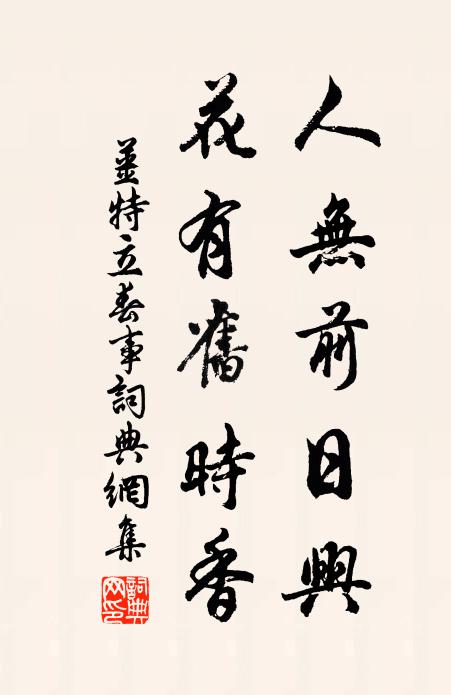 人無前日興
花有舊時香
姜特立春事詞典網集
詞典網印